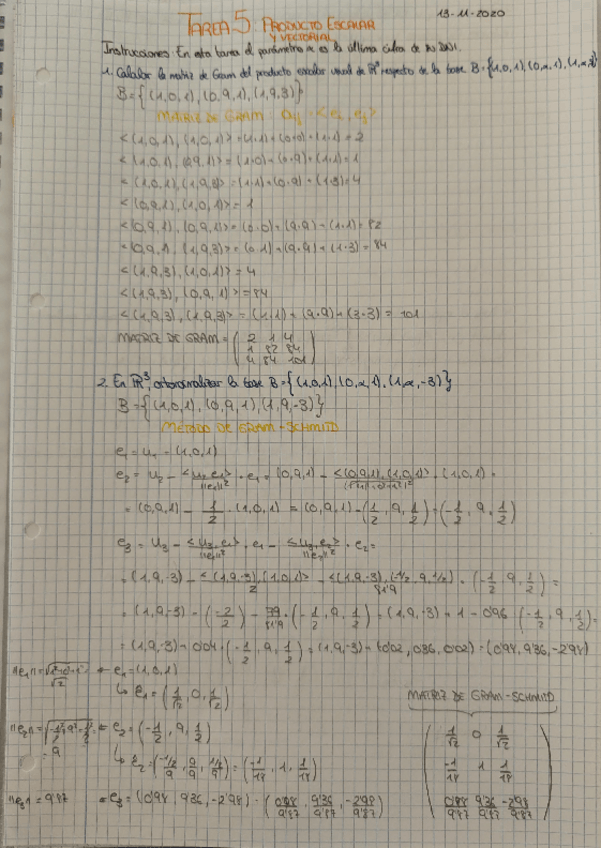 13-11-2020
TAREA 5: PRODUCTO ESCALAR
Y VECTORIAL
Instrucciones: En esta tarea el parámetro α es la última cifra de tu DNI.
1. Calcular la matriz de Gram del producto escalar usual de ℝ³ respecto de la base B={(1,0,1),(0,α,1),(1,α,3)}
B={(1,0,1),(0,9,1),(1,9,3)}
MATRIZ DE GRAM: aij = <ei, ej>
<(1,0,1),(1,0,1)> = (1·1)+(0·0)+(1·1) = 2
<(1,0,1),(0,9,1)> = (1·0)+(0·9)+(1·1) = 1
<(1,0,1),(1,9,3)> = (1·1)+(0·9)+(1·3) = 4
<(0,9,1),(1,0,1)> = 1
<(0,9,1),(0,9,1)> = (0·0)+(9·9)+(1·1) = 82
<(0,9,1),(1,9,3)> = (0·1)+(9·9)+(1·3) = 84
<(1,9,3),(1,0,1)> = 4
<(1,9,3),(0,9,1)> = 84
<(1,9,3),(1,9,3)> = (1·1)+(9·9)+(3·3) = 101
2 1 4
MATRIZ DE GRAM = 1 82 84
4 84 101
2. En ℝ³, ortonormalizar la base B={(1,0,1),(0,α,1),(1,α,-3)}
B={(1,0,1),(0,9,1),(1,9,-3)}
MÉTODO DE GRAM-SCHMITD
e1 = u1 = (1,0,1)
e2 = u2 - <u2,e1>/||e1||² · e1 = (0,9,1) - <(0,9,1),(1,0,1)> · (1,0,1) =
= (0,9,1) - 1/2 · (1,0,1) = (0,9,1) - (1/2, 9, 1/2) = (-1/2, 9, 1/2)
e3 = u3 - <u3,e1>/||e1||² · e1 - <u3,e2>/||e2||² · e2 =
= (1,9,-3) - <(1,9,-3),(1,0,1)>/2 - <(1,9,-3),(-1/2,9,1/2)>/81'9 · (-1/2, 9, 1/2) =
= (1,9,-3) - (-2/2) - 79/81'9 · (-1/2, 9, 1/2) = (1,9,-3) + 1 - 0'96 (-1/2, 9, 1/2) =
= (1,9,-3) + 0'04 · (-1/2, 9, 1/2) = (1,9,-3) + (0'02, 0'36, 0'02) = (0'98, 9'36, -2'98)
e1 = (1,0,1)
e1 = (1/√2, 0, 1/√2)
MATRIZ DE GRAM-SCHMITD
e2 = (-1/2, 9, 1/2)
= 9
e2 = (-1/2/9, 9/9, 1/2/9) = (-1/18, 1, 1/18)
||e3|| = 9'87
e3 = (0'98, 9'36, -2'98) = (0'98/9'87, 9'36/9'87, -2'98/9'87)
1/√2 0 1/√2
-1/18 1 1/18
0'98/9'87 9'36/9'87 -2'98/9'87